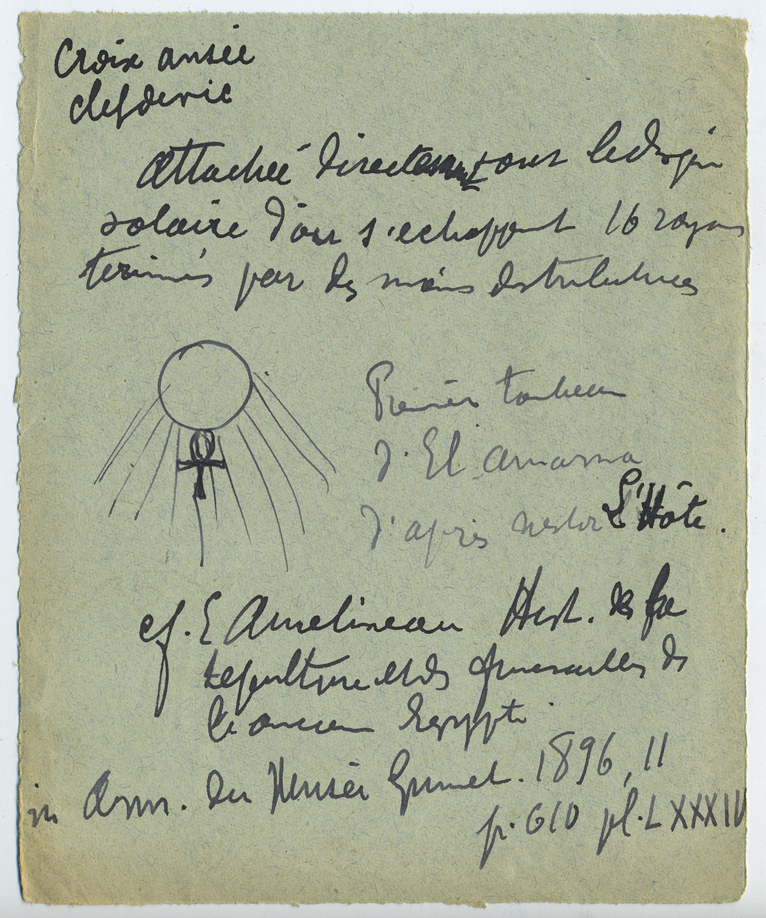 Croix ansée
clef de vie
Attachée directement sous le disque
solaire d'où s'echappent 16 rayons
terminés par des mains distributrices
Premier tombeau
d'El Amarna
d'après Nestor L'Hôte.
cf. E Amelineau Hist. de la
sepulture et des funerailles ds
l'ancienne Egypte
in Ann. du Musée Guimet. 1896, II
p. 610 pl. LXXXIV